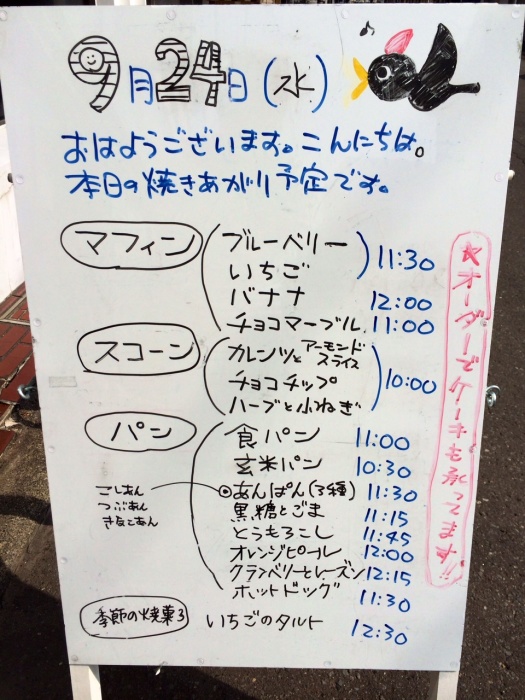 9月24日(水)
おはようございます。こんにちは。
本日の焼きあがり予定です。
マフィン
ブルーベリー
いちご
11:30
バナナ 12:00
チョコマーブル 11:00
スコーン
カレンツとアーモンドスライス
チョコチップ
ハーブと小ねぎ
10:00
パン
食パン 11:00
玄米パン 10:30
あんぱん(3種) 11:30
こしあん
つぶあん
きなこあん
黒糖とごま 11:15
とうもろこし 11:45
オレンジピール 12:00
クランベリーとレーズン 12:15
ホットドッグ 11:30
季節の焼菓子 いちごのタルト 12:30
★オーダーでケーキも承ってます!!